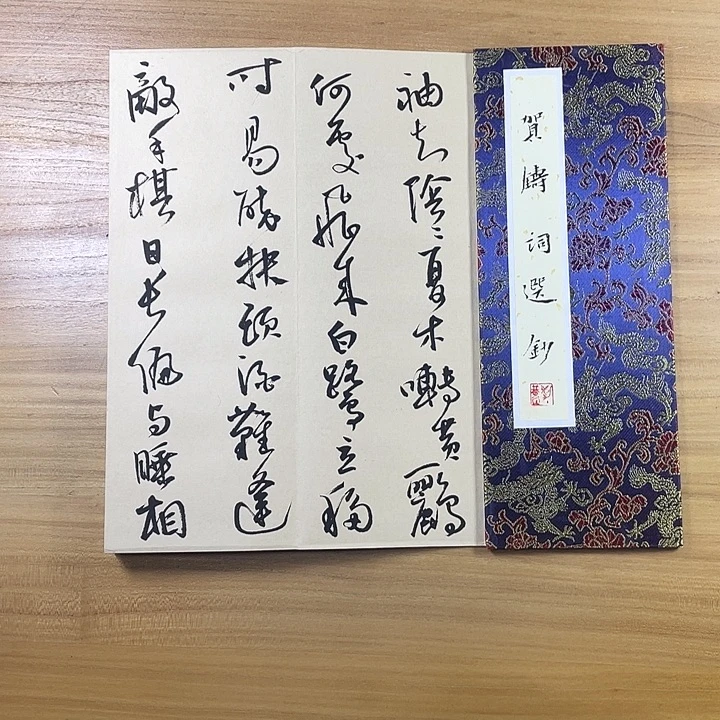 賀鑄詞選鈔
袖知陰〻夏木囀黄鸝
何處飛來白鷺立移
時易醉扶頭酒難逢
敵手棋日長偏与睡相